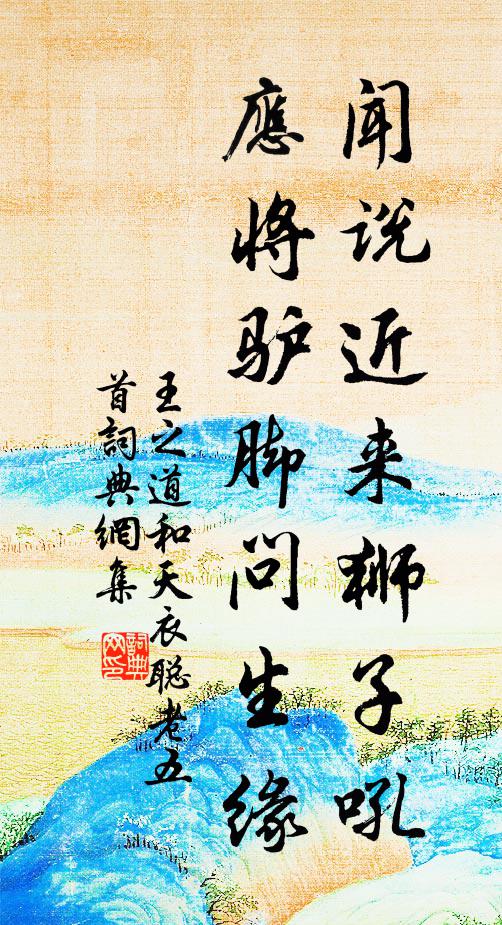 闻说近来狮子吼
應将驴脚问生缘
王之道和天衣聪老五
首詞典網集
詞典